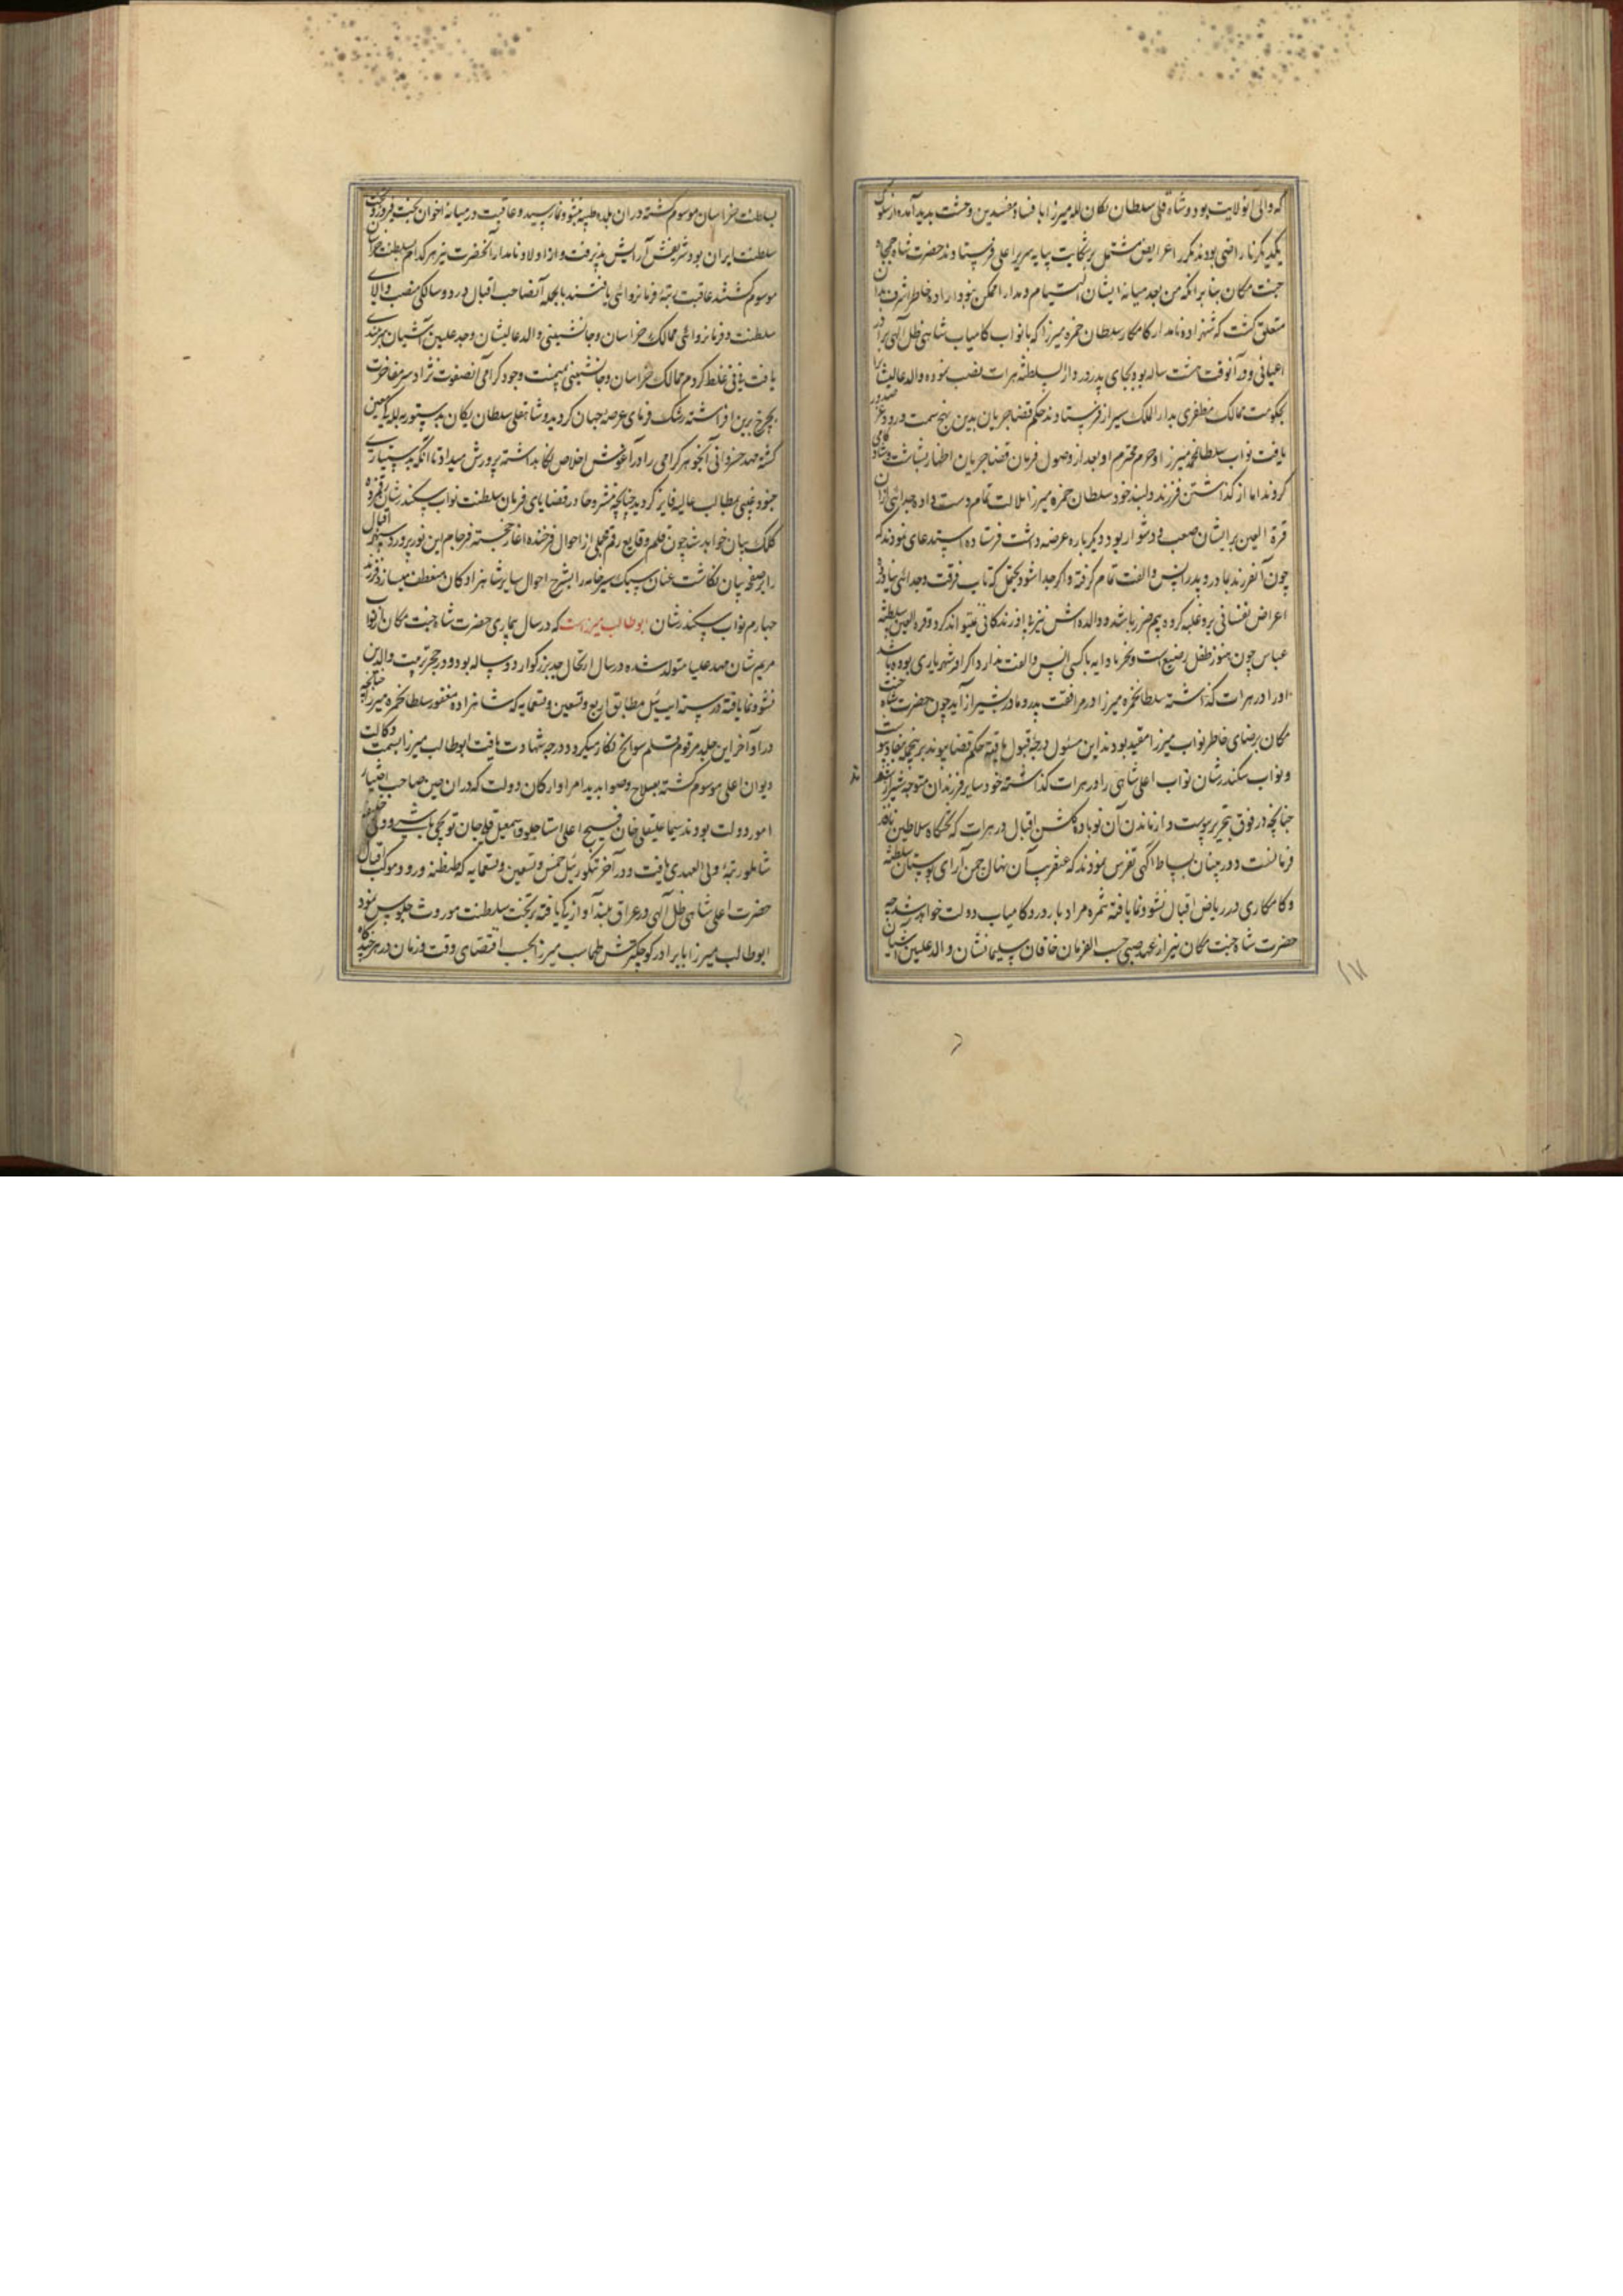 که والی آنولایت بود و شاه قلی سلطان یکان لله میرزا بافساد مفسدین وحشت پدید آمده از سلوک
یکدیگر ناراضی بودند مکرر اعرایض مشتمل بر شکایت بپایه سریر اعلی فرستادند حضرت شاه جمجاه
جنت مکان بنابر آنکه من بعد میانه ایشان التیام و مدارا ممکن نبود اراده خاطر اشرف بدان
متعلق گشت که شهزاده نامدار کامکار سلطان حمزه میرزا که با نواب کامیاب شاهی ظل آلهی برادر
اعیانی و در آنوقت هشت ساله بود بجای پدر در دار السلطنه هرات نصب نموده والد عالیشانرا
بحکومت ممالک مظفری بدار الملک شیراز فرستادند حکم قضا جریان بدین نهج سمت صدور و عز
یافت نواب سلطانمحمد میرزا و حرم محترم او بعد از وصول فرمان قضا جریان اظهار بشاشت و شادکامی
کردند اما از گذاشتن فرزند دلبند خود سلطان حمزه میرزا ملالت تمام دست داده جدائی از آن
قرة العین بر ایشان صعب و دشوار بود دیگر باره عرضه داشت فرستاده استدعای نمودند که
چون آنفرزند بمادر و پدر انس والفت تمام گرفته و اگر جدا شود یحتمل که تاب فرقت و جدائی نیاورده
اعراض نفسانی برو غلبه کرده بیم ضرر باشد و والده اش نیز بی او زندکانی نمیتواند کرد و قرة العین سلطنه
عباس چون هنوز طفل رضیع است و بغیر از دایه با کسی انس والفت ندارد اگر امر شهریاری بوده باشد
اورا در هرات گذاشته سلطانحمزه میرزا در مرافقت پدر و مادر بشیراز آید چون حضرت شاه جنت
مکان برضای خاطر نواب میرزا مقید بودند این مسئول درجه قبول یافته حکم قضا پیوند بر نهج بنفاذ پیوست
و نواب سکندر شان نواب اعلی شاهی را در هرات گذاشته خود با سایر فرزندان متوجه شیراز شدند
چنانچه در فوق بتحریر پیوست و از ماندن آن نوباوه گلشن اقبال در هرات که تختگاه سلاطین نافذ
فرمانست دوربینان بساط آگهی تفرس نمودند که عنقریب آن نهال چمن آرای بوستان سلطنه
و کامکاری در ریاض اقبال نشو و نما یافته ثمره مراد بار آورد و کامیاب دولت خواهد شد چه
حضرت شاه جنت مکان نیز از عهد صبی حسب الفرمان خاقان سلیمانشان والد علیین آشیان
بسلطنت خراسان موسوم گشته در آن بلده طیبه بنشو و نما رسید و عاقبت در میانه اخوان بخت فیروز
سلطنت ایران بوجود شریفش آرایش پذیرفت و از اولاد نامدار آنحضرت نیز هر کدام بسلطنت خراسان
موسوم گشتند عاقبت رتبه فرمانروائی یافتند بالجمله آنصاحب اقبال در دو سالگی منصب والای
سلطنت و فرمانروائی ممالک خراسان و جانشینی والد عالیشان و جد علیین آشیان
یافت نی نی غلط کردم ممالک خراسان و جانشینی بمیمنت وجود گرامی آنصفوت نژاد سر مفاخرت
بچرخ برین افراشته رشک فرمای عرصه جهان گردید و شاهقلی سلطان یکان بدستور لله
گشته مهد خسروانی آنجوهر گرامی را در آغوش اخلاص نگاهداشته پرورش میداد تا آنکه بدستیاری
جنود غیبی بمطالب عالیه فایز گردید چنانچه مشروحا در قضایای فرمان سلطنت نواب سکندر شان رقمزده
کلک بیان خواهد شد چون قلم وقایع رقم مجملی از احوال فرخنده آغاز خجسته فرجام این نور پرورد سپهر اقبال
را بر صفحه بیان نگاشت عنان سبک سیر خامه را بشرح احوال سایر شاهزادگان منعطف میسازد فرزند
چهارم نواب سکندر شان ابوطالب میرزاست که در سال بیماری حضرت شاه جنت مکان از نواب
مریم شان مهد علیا متولد شده در سال ارتحال جد بزرگوار دو ساله بود و در حجر تربیت والدین
نشو و نما یافته در سنه ایت ئیل مطابق اربع و تسعین و تسعمایه که شاهزاده مغفور سلطانحمزه میرزا چنانچه
در اواخر این جلد مرقوم قلم سوانح نگار میگردد درجه شهادت یافت ابوطالب میرزا بسمت وکالت
دیوان اعلی موسوم گشته بصلاح و صوابدید امرا و ارکان دولت که در آن حین صاحب اختیار
امور دولت بودند سیما علیقلی خان فتح اعلی استاجلو و اسمعیل قلیخان
شاملو رتبه ولی العهدی یافت و در آخر تنگوز ئیل خمس و تسعین و تسعمایه که طنطنه ورود موکب اقبال
حضرت اعلی شاهی ظل آلهی در عراق بلند آوازگی یافته بر تخت سلطنت موروث جلوس نمود
ابوطالب میرزا با برادر کوچکترش طهماسب میرزا بحسب اقتضای وقت و زمان در هر چندگاه